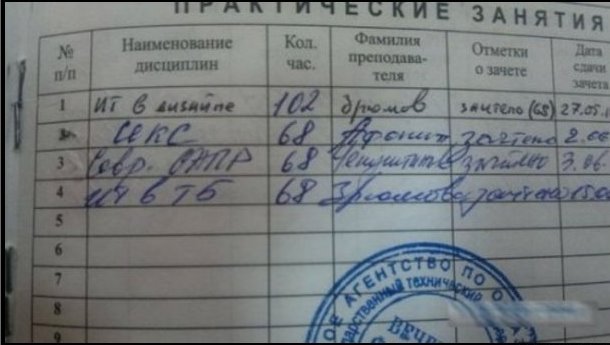 ПРАКТИЧЕСКИЕ ЗАНЯТИЯ
№ п/п Наименование дисциплин Кол. час. Фамилия преподава-теля Отметки о зачете Дата сдачи зачета
1 ИТ в дизайне 102 Зрюмов зачтено (65) 27.05.
2 СЕКС 68 зачтено 2.06
3 Совр. САПР 68 зачтено 3.06.
4 ИТ в ТБ 68 Зрюмова зачтено
5
6
7
8
9
АГЕНТСТВО ПО О
ТЕХНИЧЕСКИЙ